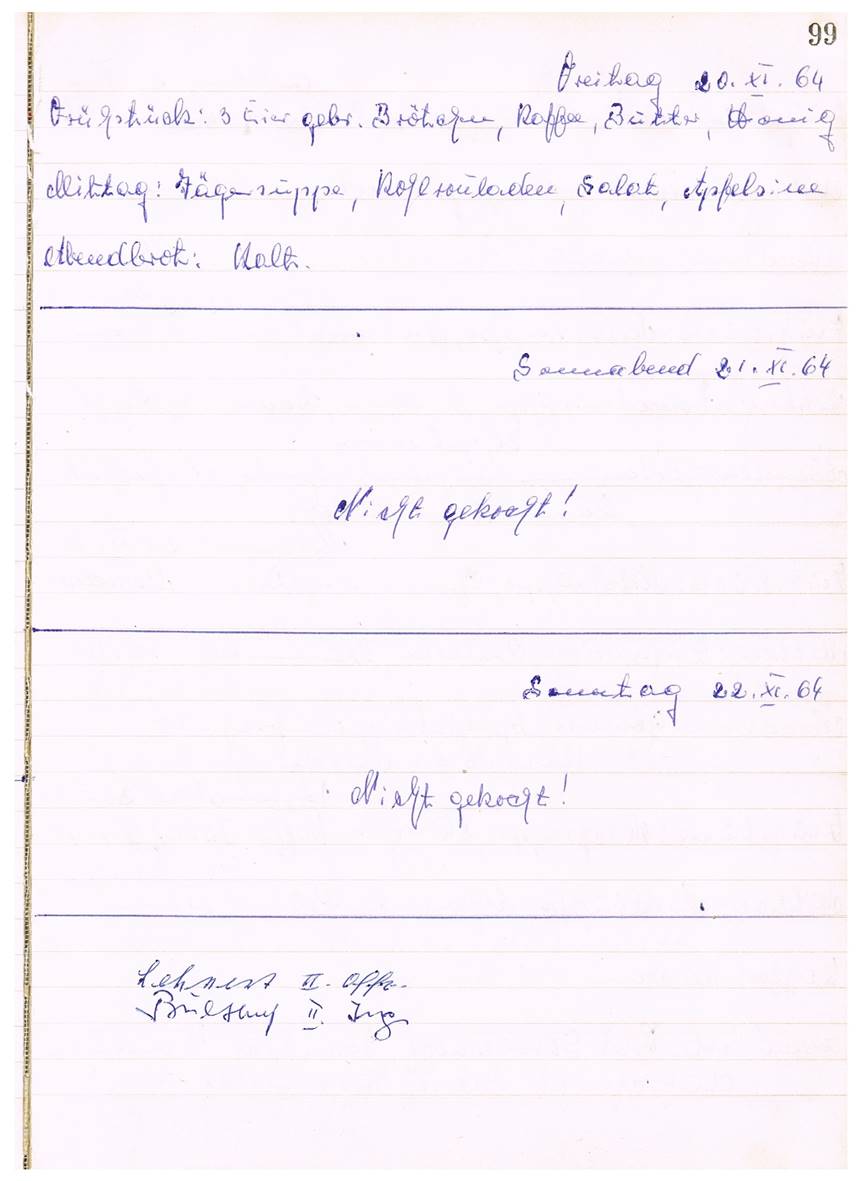 99
Freitag 20. XI. 64
Frühstück: 3 Eier gebr. Brötchen, Kaffee, Butter, Honig
Mittag: Jägersuppe, Kohlrouladen, Salat, Apfelsine
Abendbrot: Kalt.
Sonnabend 21. XI. 64
Nicht gekocht!
Sonntag 22. XI. 64
Nicht gekocht!
Lehnert II. Offz.
II. Ing